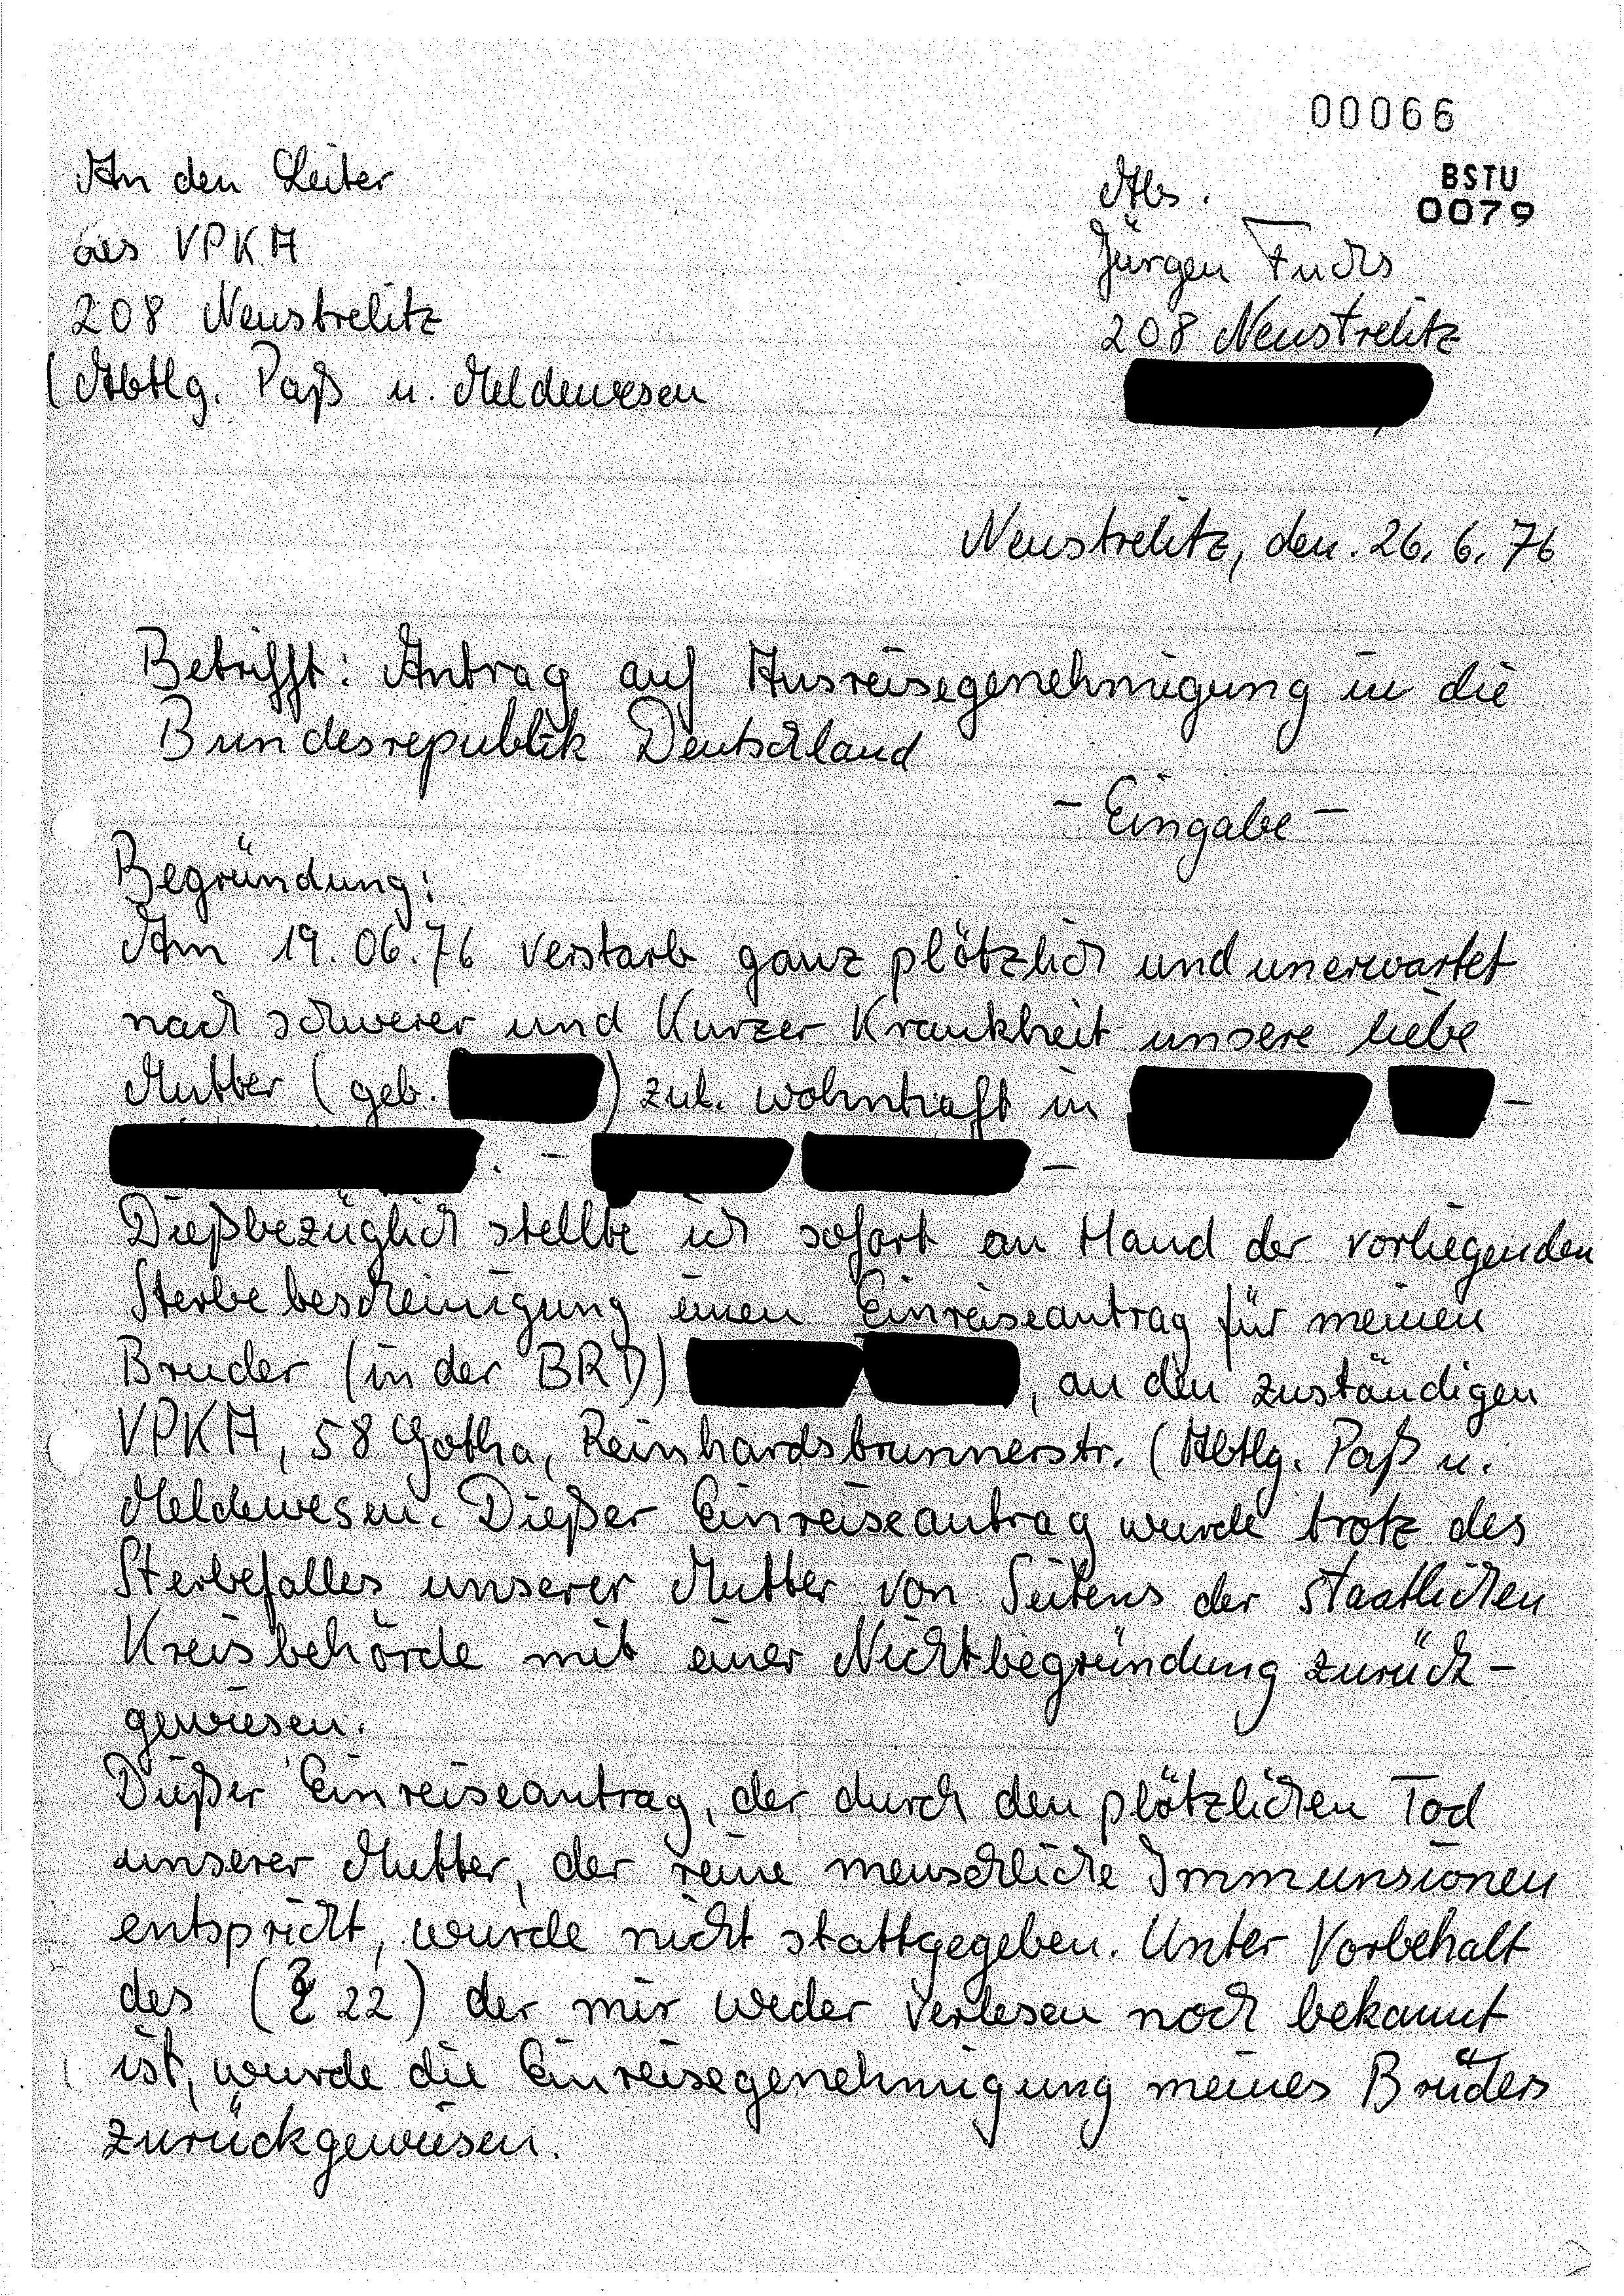 00066
BSTU
0079
An den Leiter
des VPKA
208 Neustrelitz
(Abtlg. Paß u. Meldewesen
Abs.
Jürgen Fuchs
208 Neustrelitz
Neustrelitz, den. 26. 6. 76
Betrifft: Antrag auf Ausreisegenehmigung in die
Bundesrepublik Deutschland
- Eingabe -
Begründung:
Am 19.06.76 verstarb ganz plötzlich und unerwartet
nach schwerer und Kurzer Krankheit unsere liebe
Mutter (geb. ) zul. wohnhaft in -
. - -
Dießbezüglich stellte ich sofort an Hand der vorliegenden
Sterbebescheinigung einen Einreiseantrag für meinen
Bruder (in der BRD) , an den zuständigen
VPKA, 58 Gotha, Reinhardsbrunnerstr. (Abtlg. Paß u.
Meldewesen. Dießer Einreiseantrag wurde trotz des
Sterbefalles unserer Mutter von Seitens der staatlichen
Kreisbehörde mit einer Nichtbegründung zurück-
gewiesen.
Dießer Einreiseantrag, der durch den plötzlichen Tod
unserer Mutter, der reine menschliche Immunsionen
entspricht, wurde nicht stattgegeben. Unter Vorbehalt
des (§ 22) der mir weder verlesen noch bekannt
ist, wurde die Einreisegenehmigung meines Bruders
zurückgewiesen.